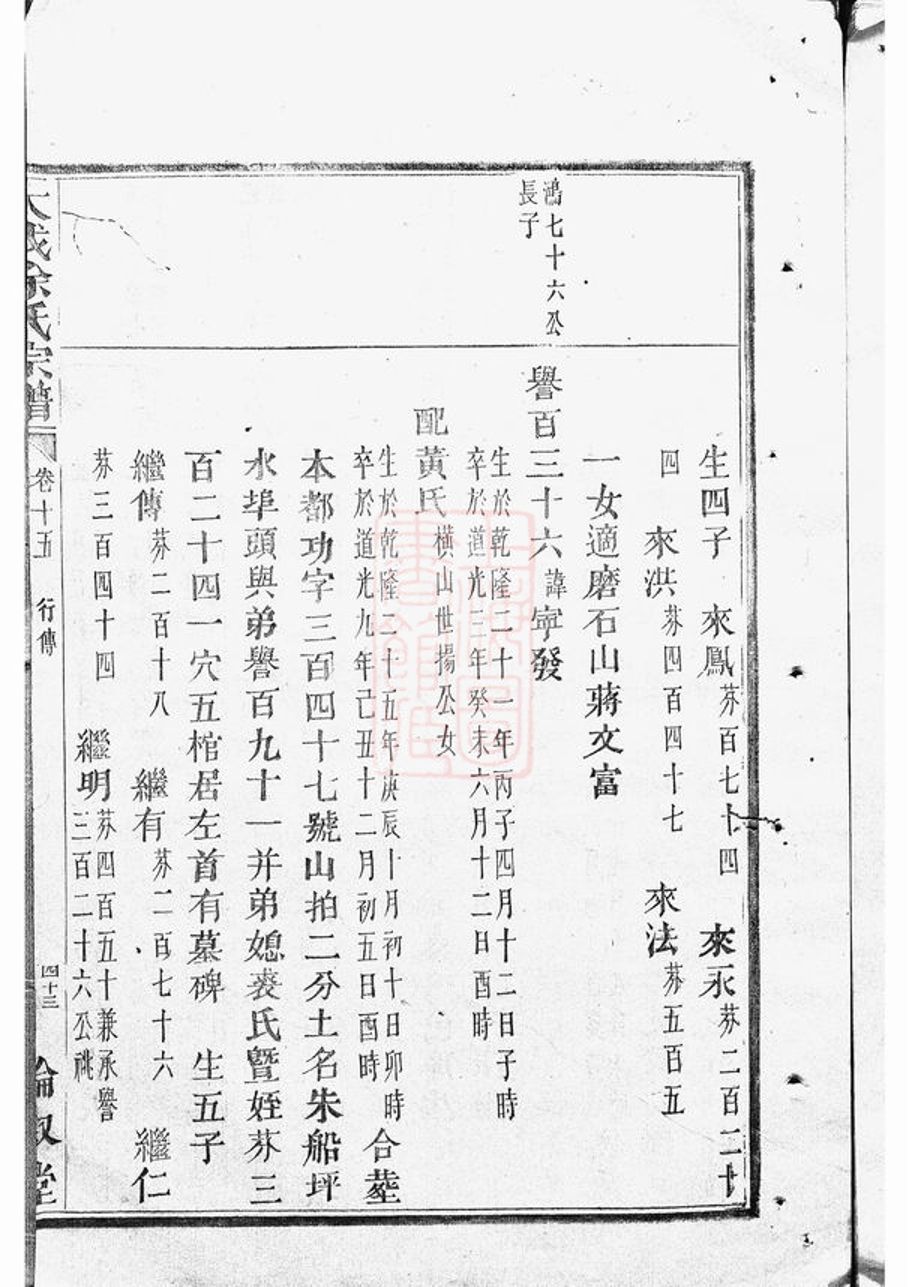 生四子 來鳳芬百七十四 來永芬二百二十
四 來洪芬四百四十七 來法芬五百五
一女適磨石山蔣文富
鴻七十六公
長子
譽百三十六諱寧發
生於乾隆二十一年丙子四月十二日子時
卒於道光三年癸未六月十二日酉時
配黃氏橫山世揚公女
生於乾隆二十五年庚辰十月初十日卯時
卒於道光九年己丑十二月初五日酉時
合塟
本都功字三百四十七號山拍二分土名朱船坪
水埠頭與弟譽百九十一并弟媳裘氏暨姪芬三
百二十四一穴五棺居左首有墓碑 生五子
繼傳芬二百十八 繼有芬二百七十六 繼仁
芬三百四十四 繼明芬四百五十兼承譽
三百二十六公祧
徐氏宗譜 卷十五 行傳 四十三